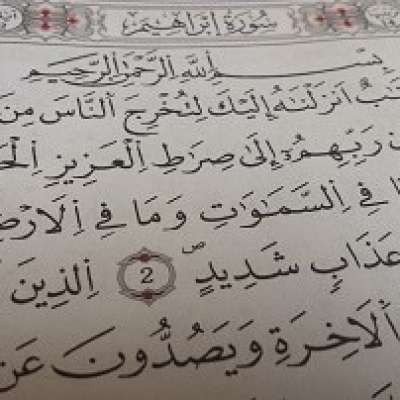 سُورَةُ إِبْرَاهِيمَ
بِسْمِ اللَّهِ الرَّحْمَٰنِ الرَّحِيمِ
أَنزَلْنَٰهُ إِلَيْكَ لِتُخْرِجَ اَلنَّاسَ مِنَ
رَبِّهِمُۥٓ إِلَىٰ صِرَٰطِ اِلْعَزِيزِ
فِي اِلسَّمَٰوَٰتِ وَمَا فِي اِلَارْضِ
عَذَابٍ شَدِيدٍ 2 اِلذِينَ
اَلَاخِرَةِ وَيَصُدُّونَ عَن